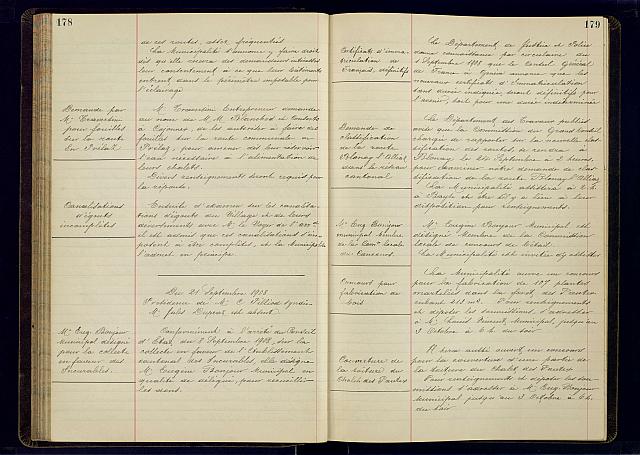 178
de ces routes, assez fréquentées
La Municipalité s'annonce y faire droit
dès qu'elle
leur consentement à ce que leur bâtiments
entrent dans le périmètre imposable pour
l'éclairage
Demande par
Mr
pour fouilles
sur la route
En
M. Entrepreneur demande
au nom de M. M. Blanchod et
à de les autoriser à faire des
fouilles sur la route communale
pour amener des leur réservoir
l'eau nécessaire à l'alimentation de
leurs chalets.
Divers renseignements seront requis pour
la réponse.
Canalisations
d'égouts
incomplètes
Ensuite d'examen sur les canalisa-
tions d'égouts du Village et de leurs
déversements avec M. le
il est admis que les canalisations
à être complétées, et la Municipalité
l'admet en principe
Du 21 Septembre 1908
Présidence de Mr C. Pilliod syndic
Mr Jules Dupraz est absent
Mr Eug. Bonjour
Municipal désigné
pour la collecte
en faveur des
Incurables.
Conformément à l'arrêté du Conseil
d'Etat, du 8 Septembre 1908, sur la
collecte en faveur de l'Etablissement
cantonal des Incurables, elle désigne
M. Eugène Bonjour Municipal en
qualité de délégué, pour recueillir
les dons.
179
Certificats d'imma-
triculation de
Français, définitifs
Le Département de Justice et Police
donne connaissance par circulaire du
Septembre 1908 que le Consul Général
de France à Genève annonce que les
nouveaux certificats d'Immatriculation
sans durée indiquée, seront définitifs pour
l'avenir, soit pour une durée indéterminée
Demande de
Classification
de la route
Blonay l'Alliaz
dans le réseau
cantonal
Le Département des Travaux publics
avise que la Commission du Grand Conseil
chargée de rapporter sur la nouvelle clas-
sification des routes, se rendra à
Blonay le 24 Septembre à 2 heures,
pour examiner notre demande de clas-
sification de la route Blonay l'Alliaz
La Municipalité assistera à 2 h.
à et être s'il y a lieu à leur
disposition pour renseignements.
Mr Eug. Bonjour
municipal Membre
de la Comon locale
du Concours
M. Eugène Bonjour Municipal est
désigné Membre de la Commission
locale du concours de bétail.
La Municipalité est invitée d'y assister
Concours pour
fabrication de
bois
La Municipalité ouvre un concours
pour la fabrication de 107 plantes
martelées dans la forêt des
cubant m3. Pour renseignements
et déposer les soumissions, s'adresser
à Mr Municipal, jusqu'au
3 Octobre à 6 h. du soir
Couverture de
la toiture du
Chalet des
Il sera aussi ouvert un concours
pour la couverture d'une partie de
la toiture du chalet des
Pour renseignements et déposer les sou-
missions s'adresser à Mr Eug. Bonjour
Municipal jusqu'au 3 Octobre à 6 h.
du soir